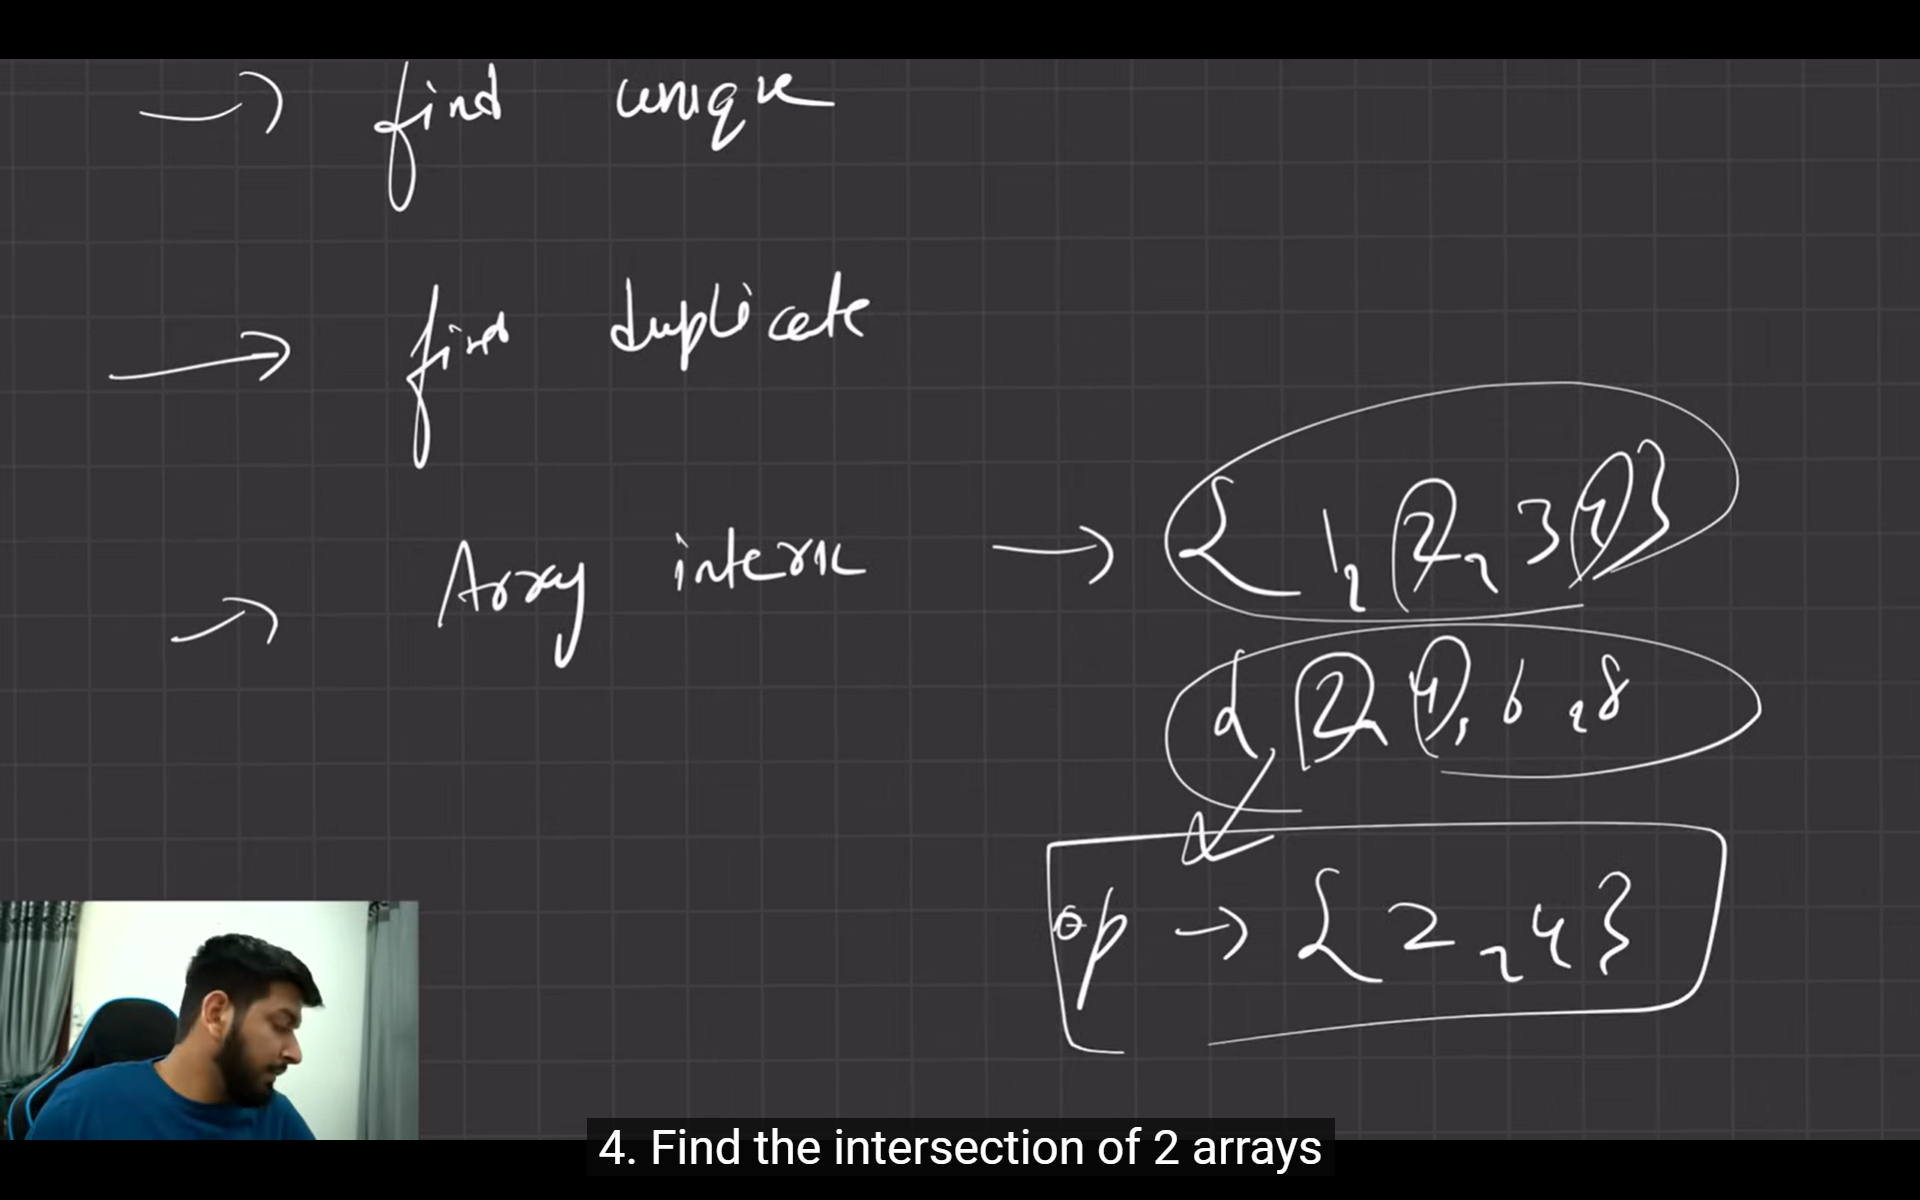 → find unique
→ find duplicate
→ Array inters → { 1, 2, 3 4 }
{, 2, 4, 6, 8
op → { 2, 4 }
4. Find the intersection of 2 arrays